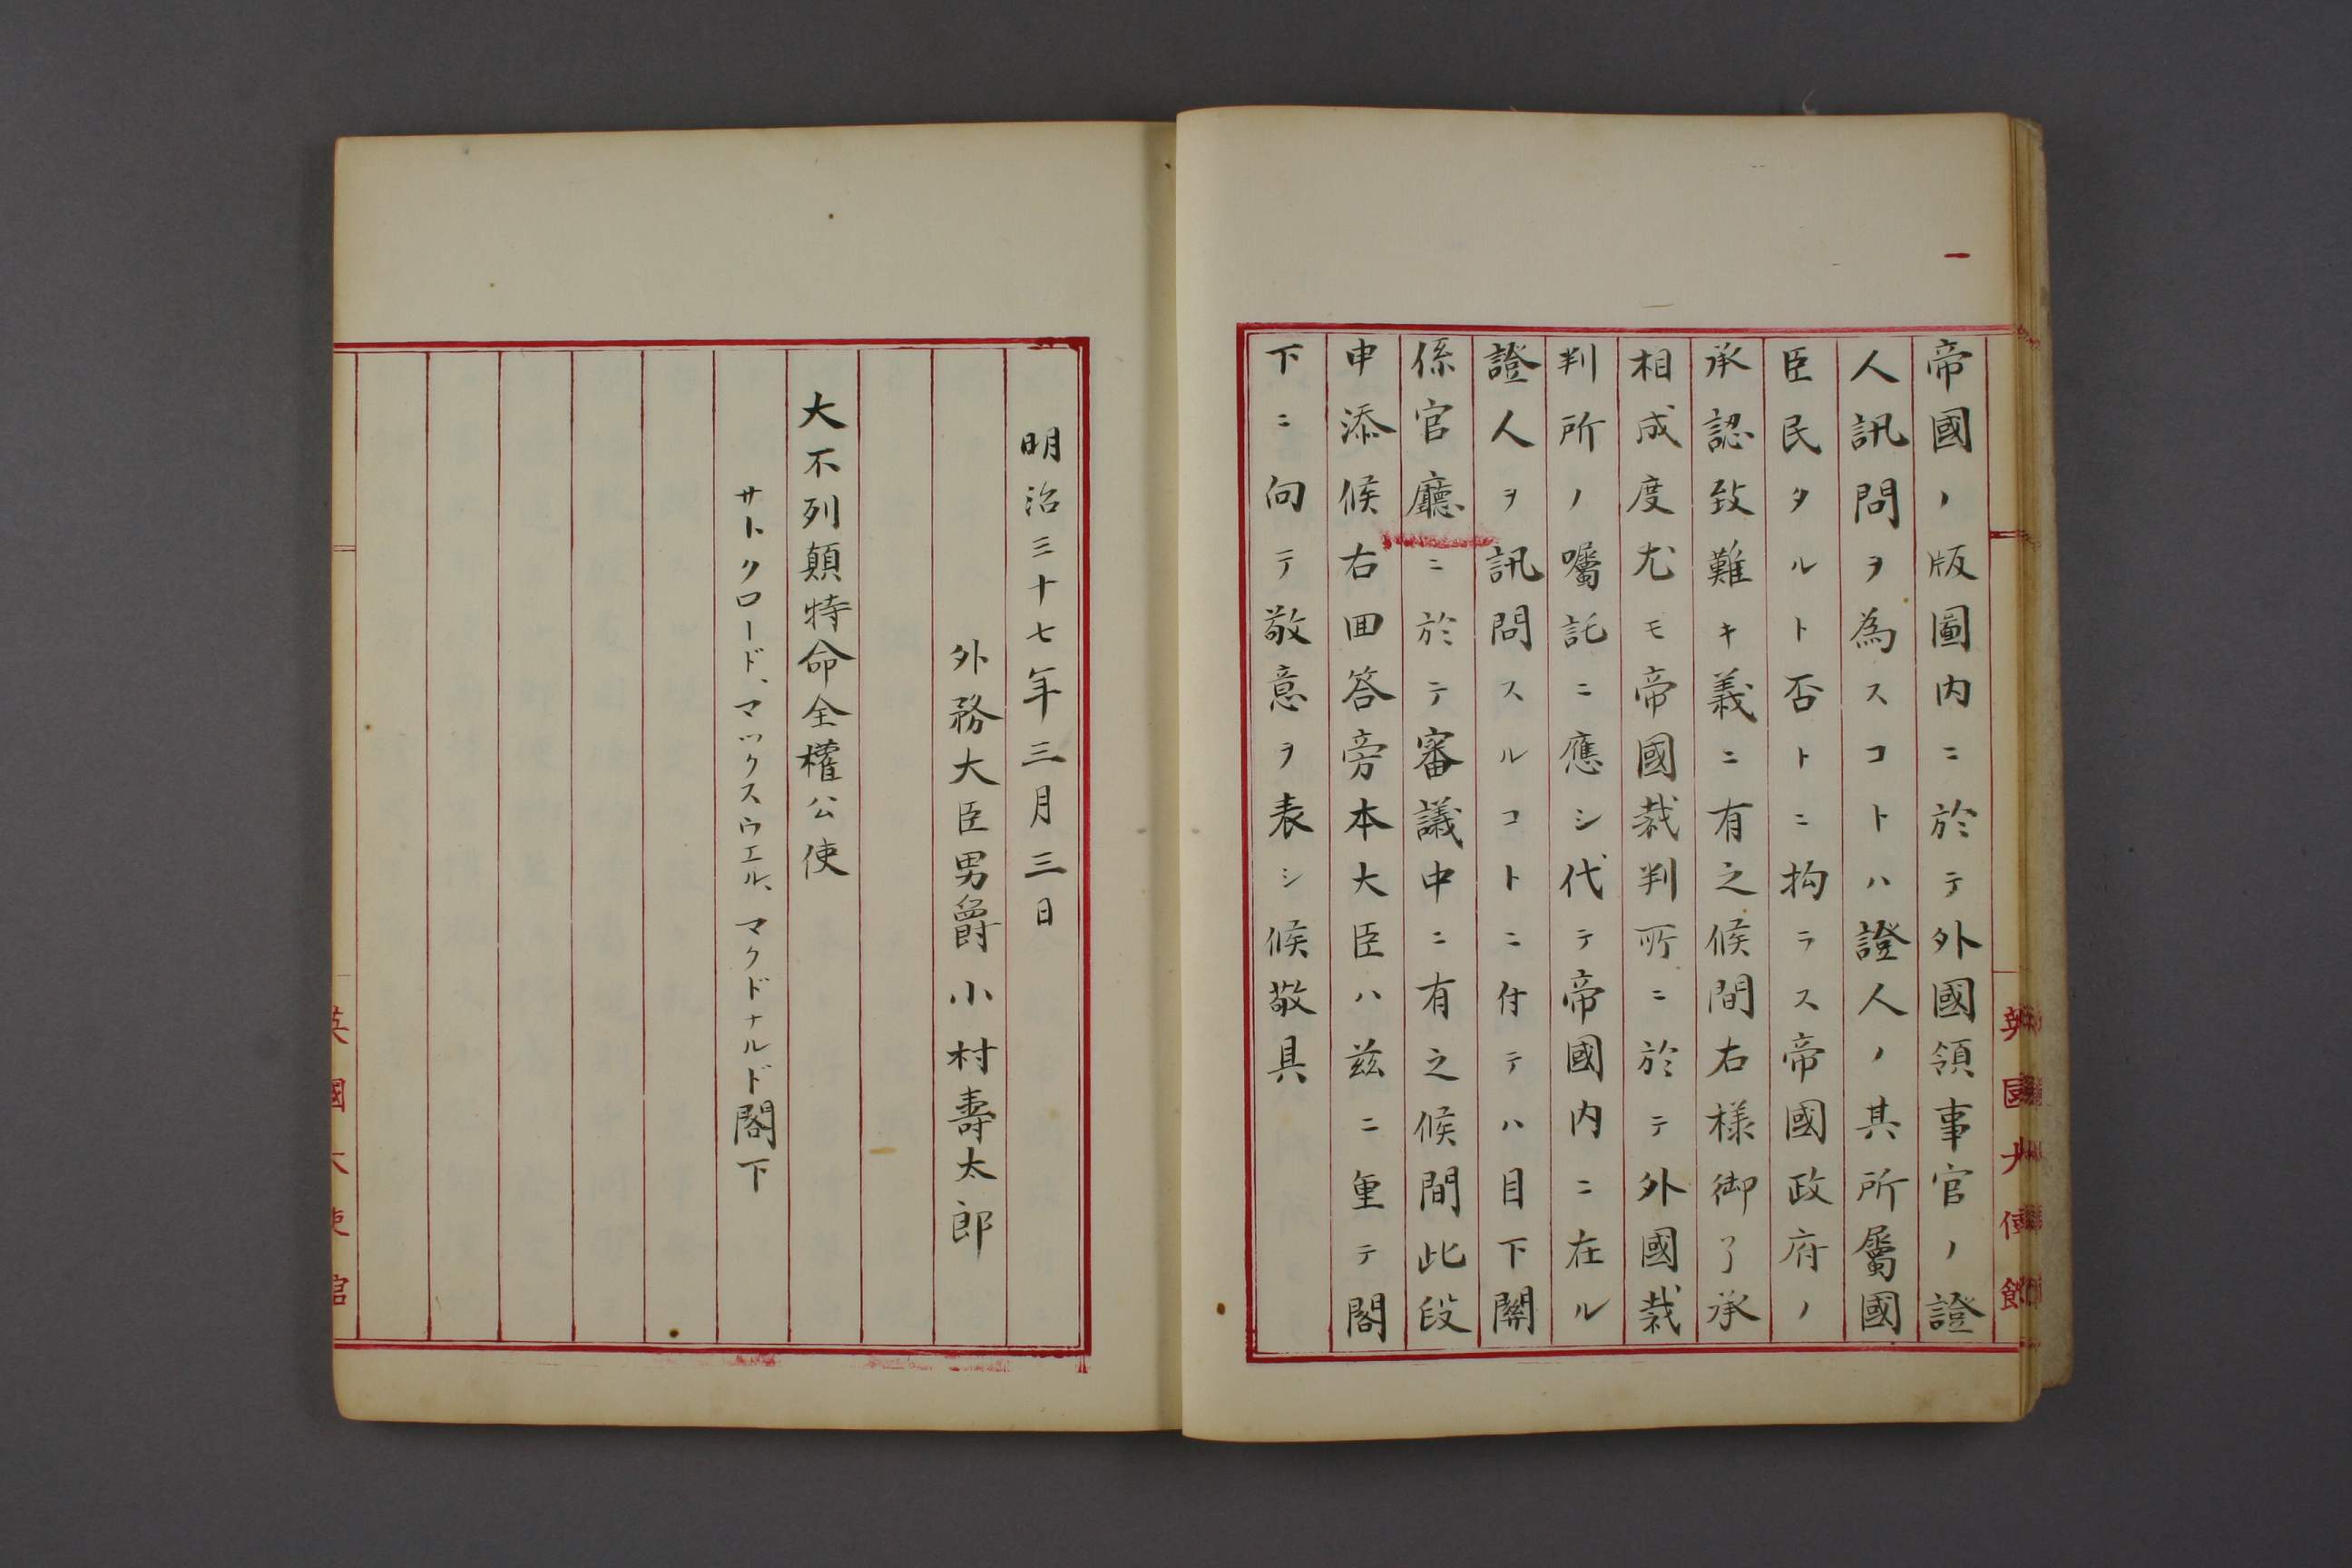 帝國ノ版圖内ニ於テ外國領事官ノ證
人訊問ヲ為スコトハ證人ノ其所屬國
臣民タルト否トニ拘ラス帝國政府ノ
承認致難キ義ニ有之候間右様御了承
相成度尤モ帝國裁判所ニ於テ外國裁
判所ノ囑託ニ應シ代テ帝國内ニ在ル
證人ヲ訊問スルコトニ付テハ目下關
係官廳ニ於テ審議中ニ有之候間此段
申添候右回答旁本大臣ハ茲ニ重テ閣
下ニ向テ敬意ヲ表シ候敬具
明治三十七年三月三日
外務大臣男爵小村壽太郎
大不列顛特命全權公使
サトクロード、マックスウエル、マクドナルド閣下
英國大使館